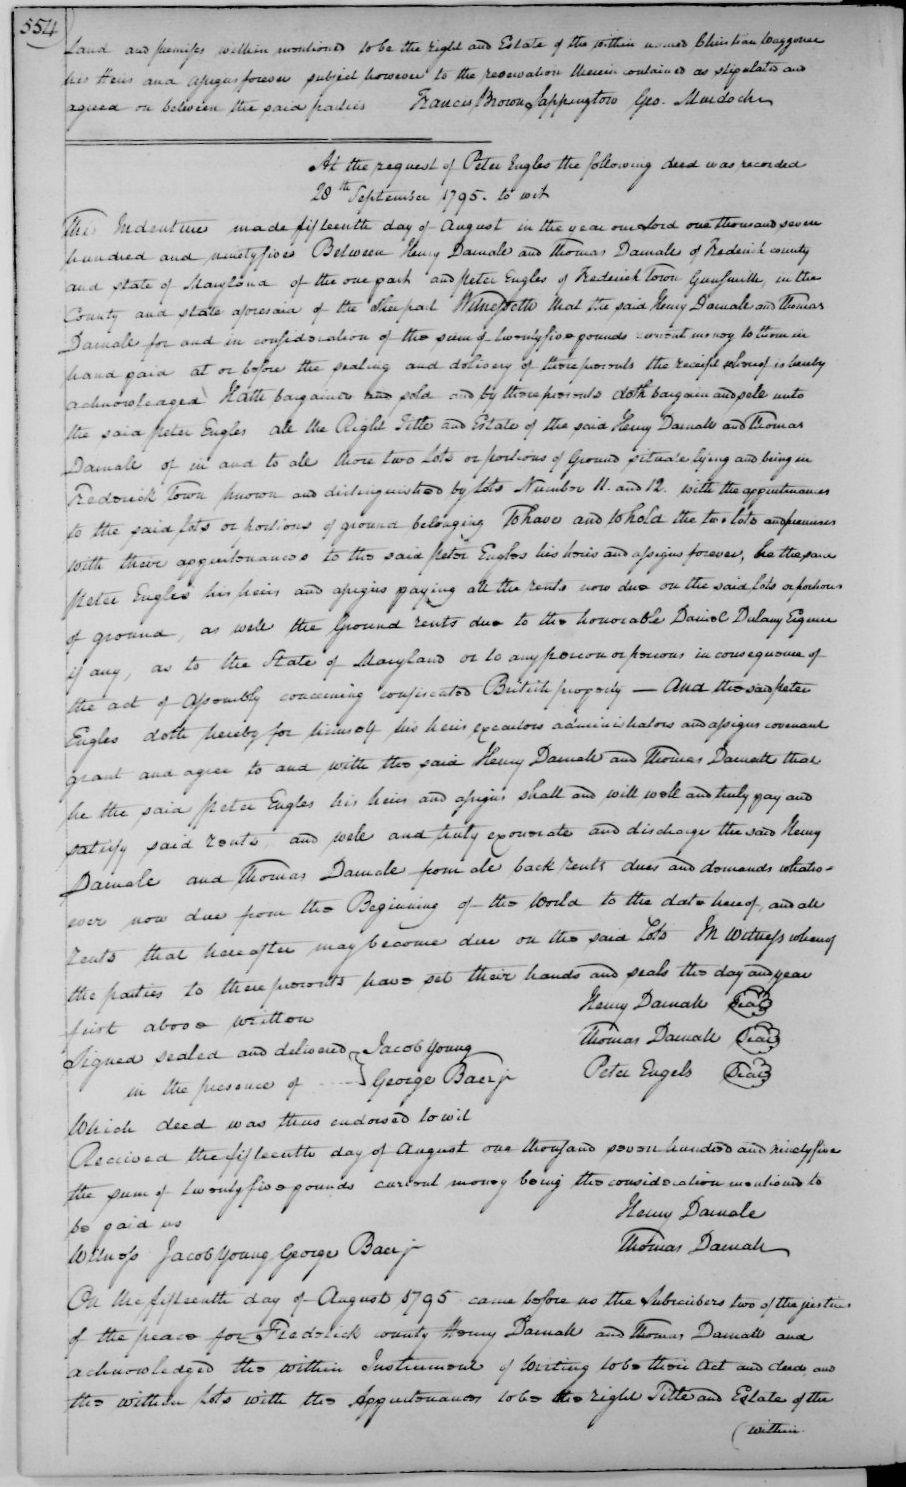 554
Land and premises within mentioned to be the right and Estate of the within named Christian Waggoner
his Heirs and assigns forever subject however to the reservation therein contained as stipulated and
agreed on between the said parties Francis Brown Sappington Geo. Murdoch
At the request of Peter Engles the following deed was recorded
28th September 1795. to wit
This Indenture made fifteenth day of August in the year our Lord one thousand seven
hundred and ninety five Between Henry Darnale and Thomas Darnale of Frederick county
and state of Maryland of the one part and Peter Engles of Frederick Town Gunsmith, in the
County and state aforesaid of the other part Witnesseth that the said Henry Darnale and Thomas
Darnale for and in consideration of the sum of twenty five pounds current money to them in
hand paid at or before the sealing and delivery of these presents the receipt whereof is hereby
acknowledged Hath bargained and sold and by these presents doth bargain and sell unto
the said Peter Engles all the Right Title and Estate of the said Henry Darnall and Thomas
Darnale of in and to all those two Lots or portions of Ground situate lying and being in
Frederick Town known and distinguished by lots Number 11. and 12. with the appurtenances
to the said lots or portions of ground belonging To have and to hold the two lots and premises
with their appurtenances to the said Peter Engles his heirs and assigns forever, he the said
Peter Engles his heirs and assigns paying all the rents now due on the said lots or portions
of ground, as well the Ground rents due to the honorable Daniel Dulany Esquire
if any, as to the State of Maryland or to any person or persons in consequence of
the act of Assembly concerning confiscated British property — And the said Peter
Engles doth hereby for himself his heirs, executors administrators and assigns covenant
grant and agree to and with the said Henry Darnall and Thomas Darnall that
he the said Peter Engles his heirs and assigns shall and will well and truly pay and
satisfy said rents, and well and truly exonerate and discharge the said Henry
Darnale and Thomas Darnale from all back rents dues and demands whatso-
ever now due from the Beginning of the World to the date hereof, and all
rents that hereafter may become due on the said Lots In Witness whereof
the parties to these presents have set their hands and seals the day and year
first above written Henry Darnall Seal
Signed sealed and delivered } Jacob Young Thomas Darnall Seal
in the presence of } George Baer jr Peter Engels Seal
Which deed was thus endorsed to wit
Received the fifteenth day of August one thousand seven hundred and ninety five
the sum of twenty five pounds current money being the consideration mentioned to
be paid us Henry Darnale
Witness Jacob Young George Baer jr Thomas Darnall
On the fifteenth day of August 1795 came before us the Subscribers two of the justices
of the peace for Frederick county Henry Darnall and Thomas Darnall and
acknowledged the within Instrument of Writing to be their Act and deed, and
the within Lots with the Appurtenances to be the right Title and Estate of the
(within